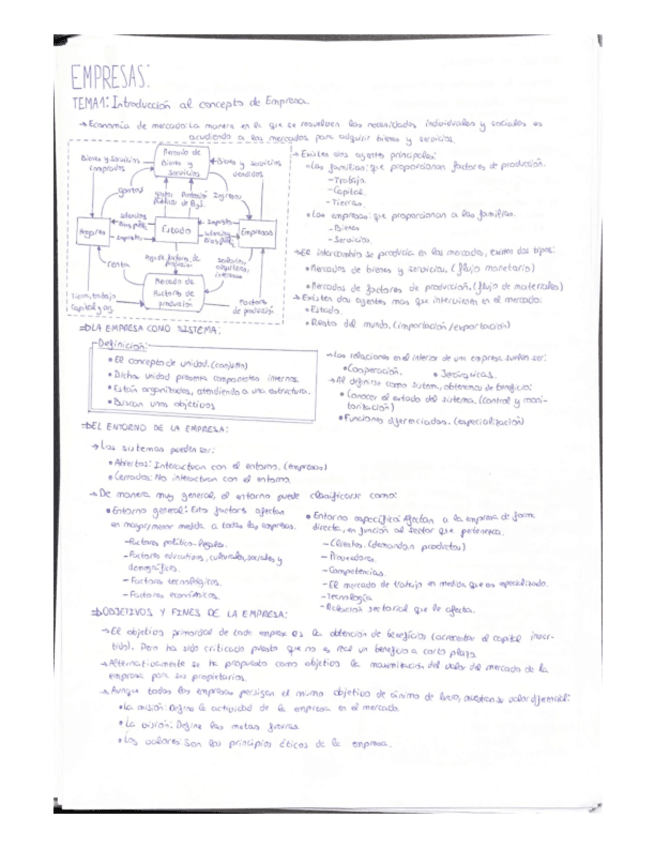 EMPRESAS:
TEMA 1: Introducción al concepto de Empresa.
→ Economía de mercado: La manera en la que se resuelven las necesidades individuales y sociales es
acudiendo a los mercados para adquirir bienes y servicios.
Mercado de
Bienes y
servicios
Bienes y servicios
comprados
Bienes y servicios
vendidos
gastos
Ingresos
Hogares
Estado
Empresas
impuestos
impuestos
renta
salarios,
alquileres,
intereses
Mercado de
Factores de
producción
Tierra, trabajo
Factores
de producción
→ Existen dos agentes principales:
• Las familias: que proporcionan factores de producción.
- Trabajo.
- Capital.
- Tierras.
• Las empresas: que proporcionan a las familias.
- Bienes
- Servicios.
→ El intercambio se produce en los mercados, existen dos tipos:
• Mercados de bienes y servicios. (flujo monetario)
• Mercados de factores de producción. (flujo de materiales)
→ Existen dos agentes mas que intervienen en el mercado:
• Estado.
• Resto del mundo. (importación/exportación)
⇒ LA EMPRESA COMO SISTEMA:
Definición:
• El concepto de unidad. (conjunto)
• Dicha unidad presenta componentes internos.
• Están organizados, atendiendo a una estructura.
• Buscan unos objetivos
→ Las relaciones en el interior de una empresa suelen ser:
• Cooperación. • Jerárquicas.
→ Al definirse como sistema, obtenemos de beneficio:
• Conocer el estado del sistema. (control y moni-
torización)
• Funciones diferenciadas. (especialización)
⇒ EL ENTORNO DE LA EMPRESA:
→ Los sistemas pueden ser:
• Abiertos: Interactuan con el entorno. (empresas)
• Cerrados: No interactuan con el entorno.
→ De manera muy general, el entorno puede clasificarse como:
• Entorno general: Estos factores afectan
en mayor/menor medida a todas las empresas.
- Factores político-legales.
- Factores educativos, culturales, sociales y
demográficos.
- Factores tecnológicos.
- Factores económicos.
• Entorno específico: Afectan a la empresa de forma
directa, en función al sector que pertenezca.
- Clientes. (demandan productos)
- Proveedores.
- Competencias.
- El mercado de trabajo en medida que es especializado.
- Tecnología
- sectorial que le afecta.
⇒ OBJETIVOS Y FINES DE LA EMPRESA:
→ El objetivo primordial de toda empresa es la obtención de beneficios (acrecentar el capital inver-
tido). Pero ha sido criticado puesto que no es real un beneficio a corto plazo.
→ Alternativamente se ha propuesto como objetivo la maximización del valor del mercado de la
empresa para sus propietarios.
→ Aunque todas las empresas persiguen el mismo objetivo de ánimo de lucro, valor diferencial:
• La misión: Define la actividad de la empresa en el mercado.
• La visión: Define las metas futuras.
• Los valores son los principios éticos de la empresa.